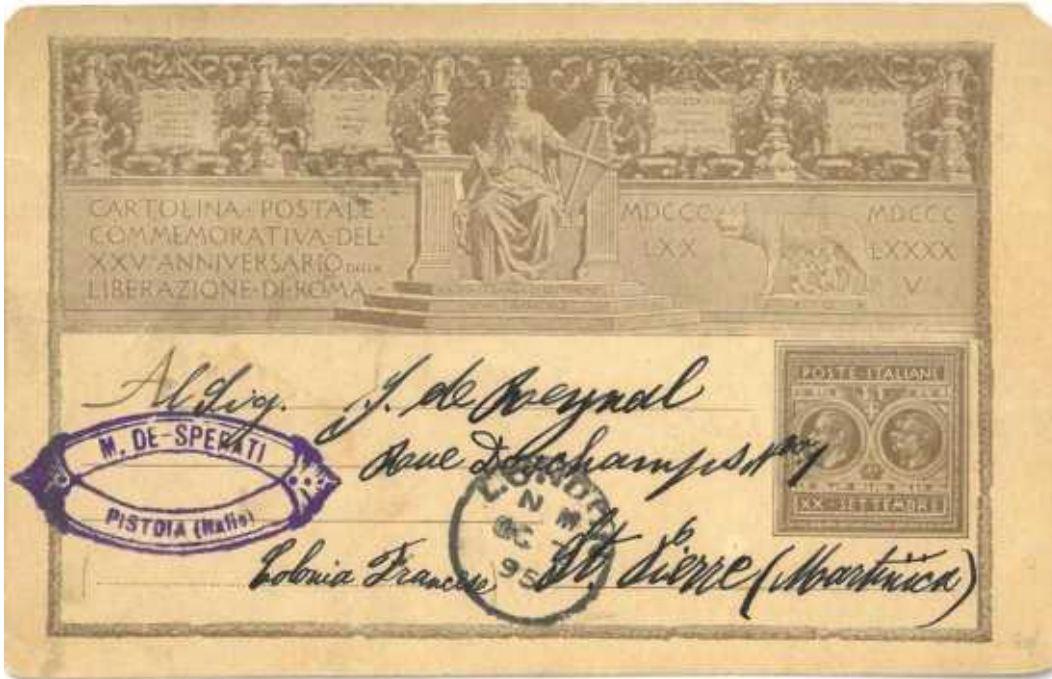 CARTOLINA · POSTALE ·
COMMEMORATIVA · DEL ·
XXV° ANNIVERSARIO DELLA
LIBERAZIONE · DI · ROMA
MDCCC
LXX
MDCCC
LXXXX
V
POSTE · ITALIANE
XX · SETTEMBRE
Al Sig. J. de Reynal
Rue Deschamps
St. Pierre (Martinica)
Colonia Francese
M. DE-SPERATI
PISTOIA (Italie)
LONDON
N M
OC
95